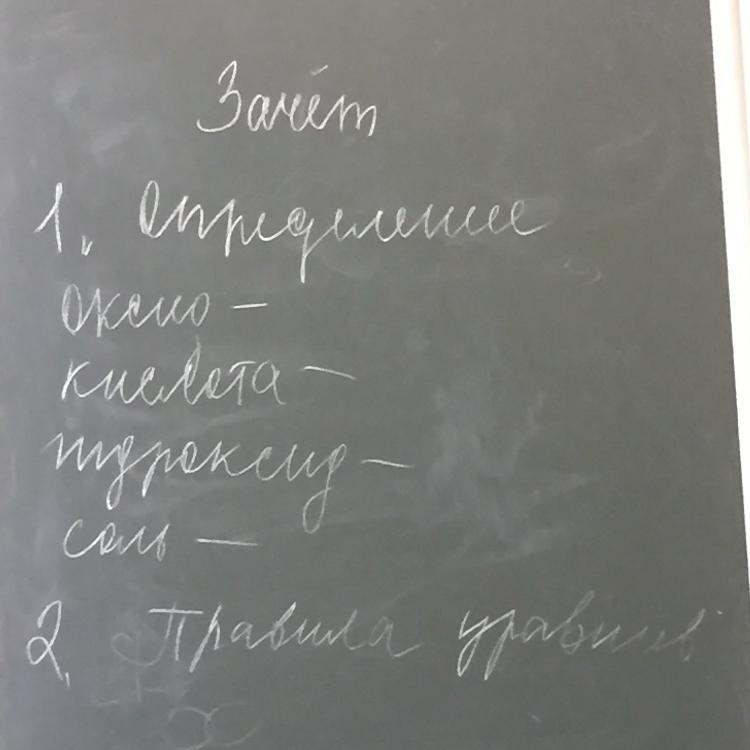 Зачёт
1. Определение
оксид —
кислота —
гидроксид —
соль —
2. Правила